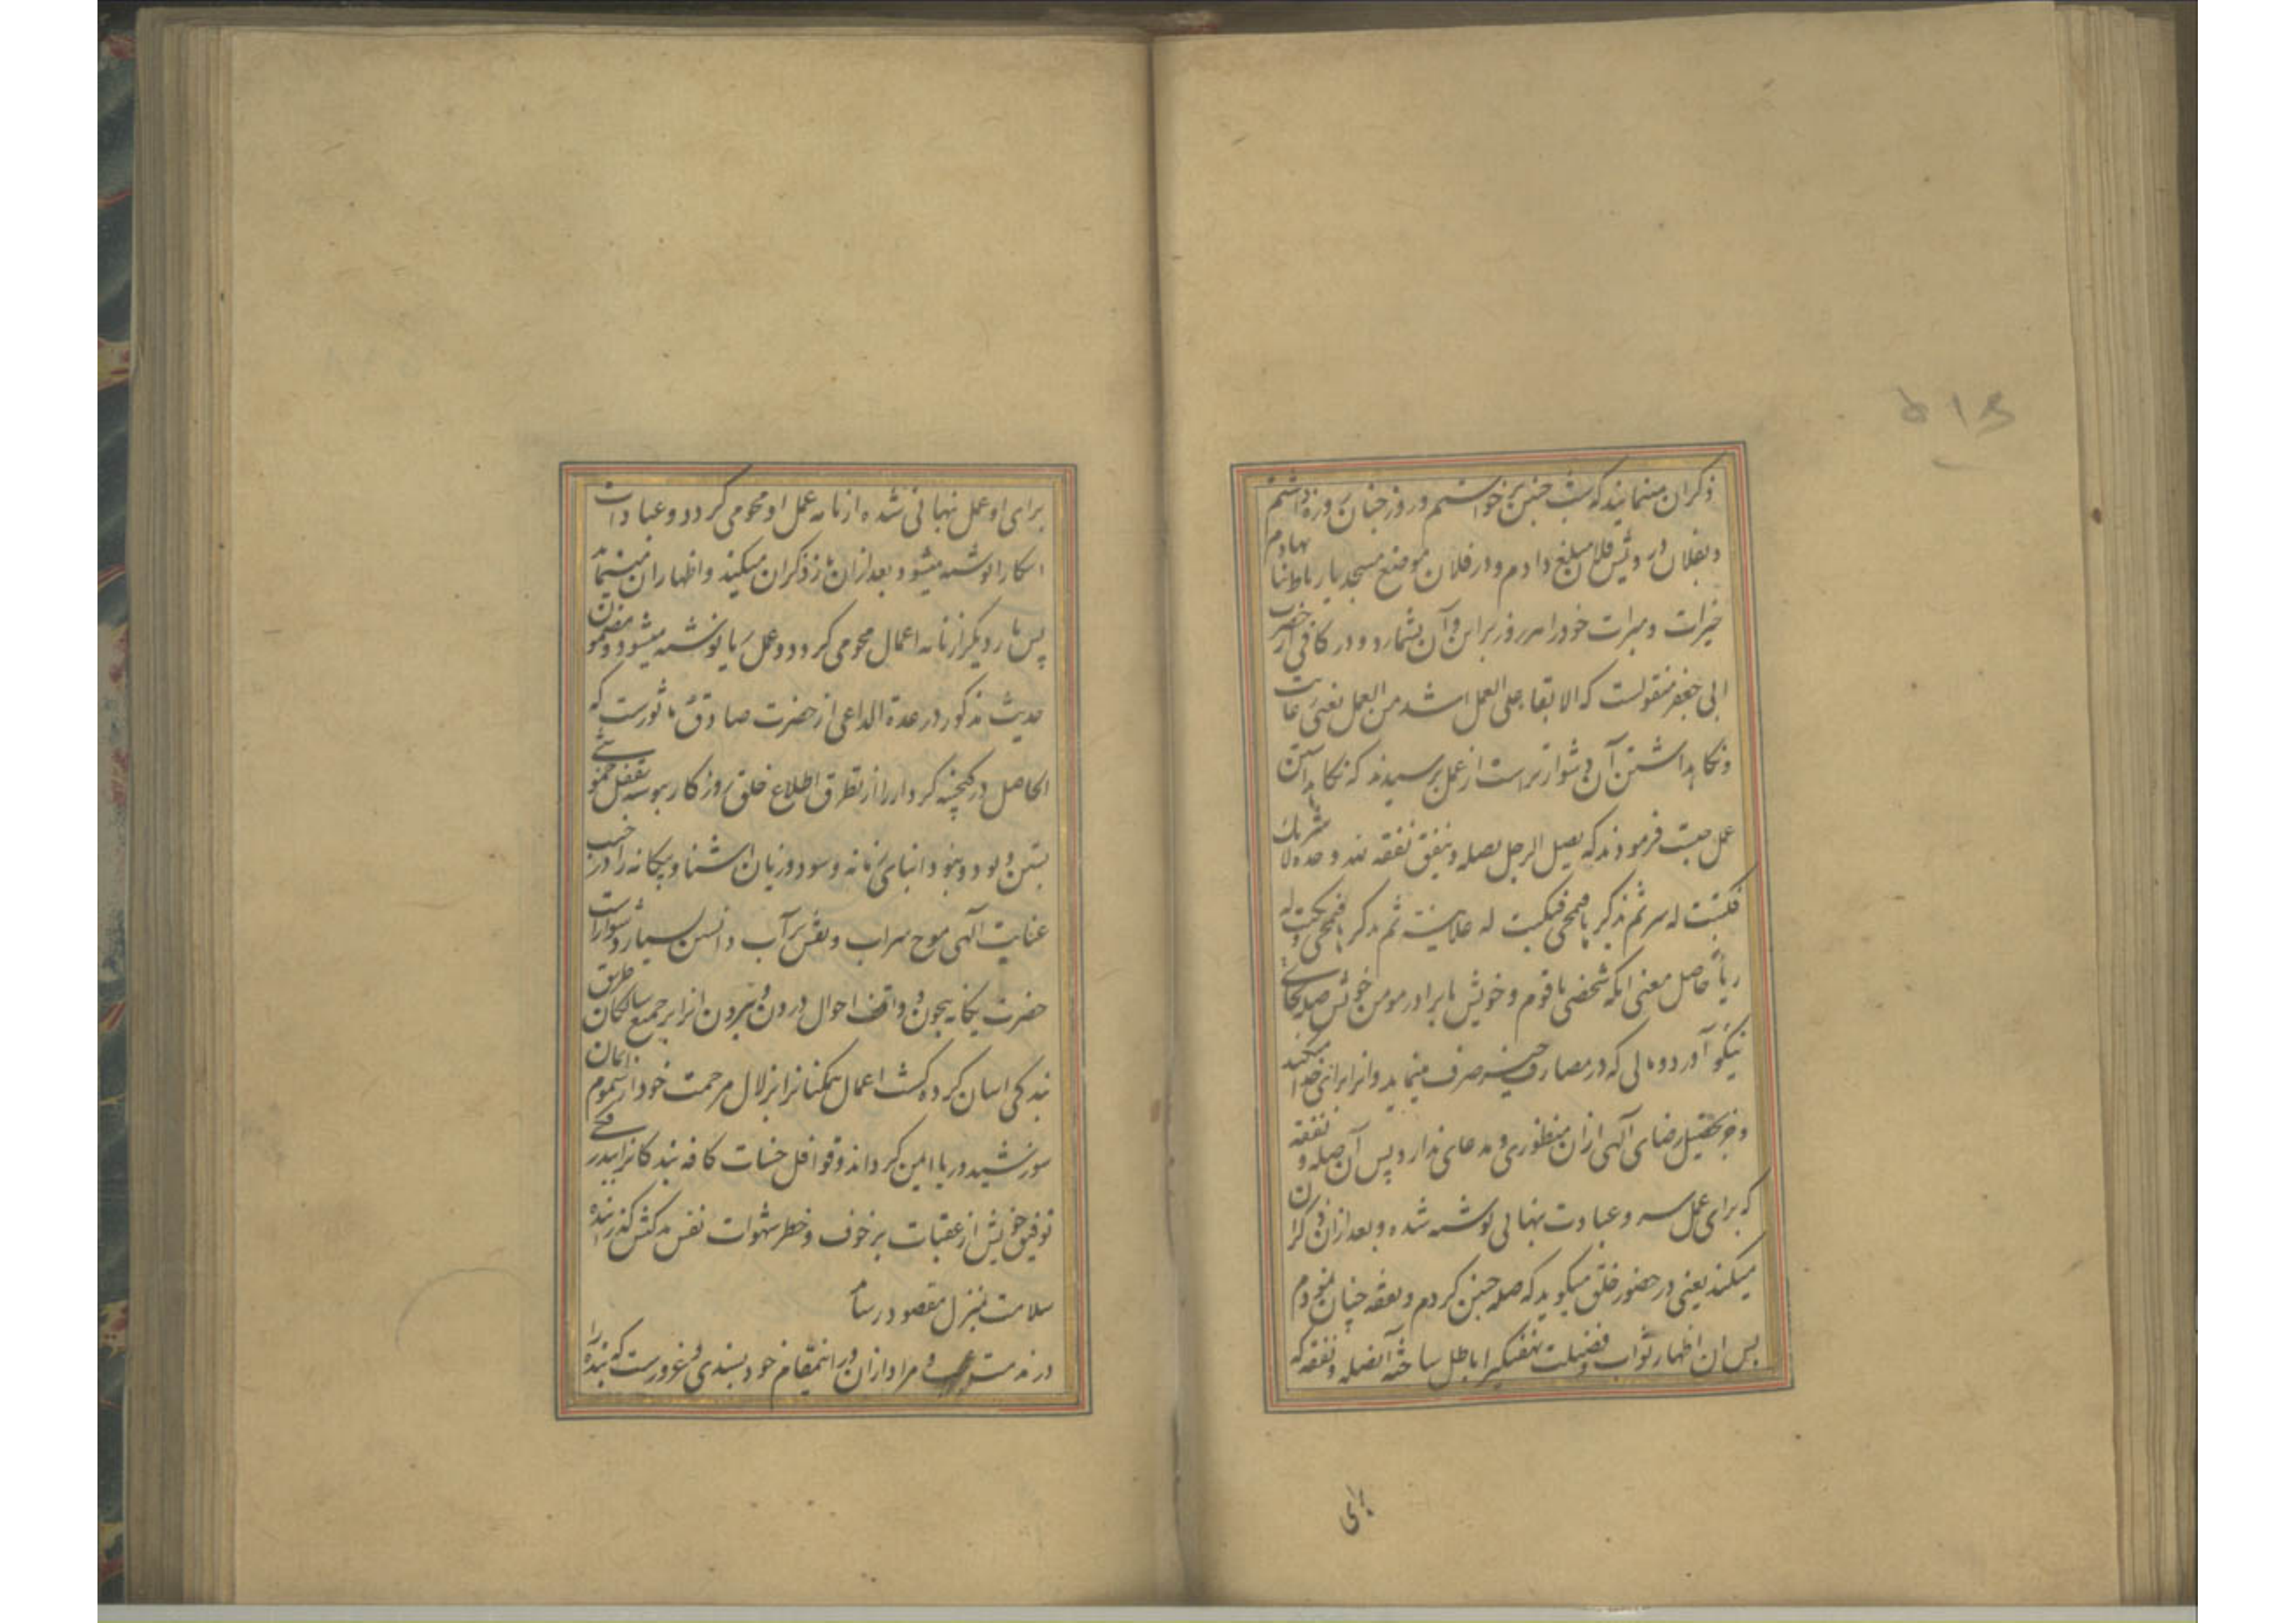 ذکر ان مینمایند که شب چنین برخواستم و روز چنان روزه داشتم
و بفلان درویش فلان مبلغ دادم و در فلان موضع مسجد یا رباط بنا نهادم
خیرات و مبرات خود را هر روز بر این و آن بشمارد و در کافی از حضرت
ابی جعفر منقولست که الابقاء علی العمل اشد من العمل یعنی رعایت
و نگاهداشتن آن دشوارتر است از عمل پرسیدند که نگاهداشتن
عمل چیست فرمودند که یصل الرجل بصله و ینفق نفقه لله وحده لا شریک له
فکتبت له سر ثم یذکر ها فتمحی فتکتب له علانیة ثم یذکر ها فتمحی و تکتب له
ریاء حاصل معنی انکه شخصی با قوم و خویش یا برادر مومن خویش صله بجای
نیکو آورد و مالی که در مصارف خیر صرف مینماید و انرا برای خدا میکند
و جز تحصیل رضای آلهی ازان منظوری و مدعای ندارد پس آن صله و نفقه
که برای عمل سر و عبادت نهانی نوشته شده و بعد ازان ذکر ان
میکند یعنی در حضور خلق میگوید که صله چنین کردم و نفقه چنان نمودم
پس ان اظهار ثواب و فضیلت نهفتگی را باطل ساخته آنصله و نفقه که
برای
برای او عمل نهانی شده از نامه عمل او محو می کردد و عبادات
اشکارا نوشته میشود و بعد ازان باز ذکر ان میکند و اظهار ان مینماید
پس بار دیگر از نامه اعمال محو می کردد و عمل ریا نوشته میشود و مضمون
حدیث مذکور در عدة الداعی از حضرت صادق ماثورست که
الحاصل در گنجینه کردار را از تطرق اطلاع خلق روزگار بوسه بقفل خموشی
بستن و بود و نبود ابنای زمانه و سود و زیان اشنا و بیگانه را در جنب
عنایت آلهی موج سراب و نقش بر آب دانستن بسیار دشوار است
حضرت یگانه بیچون و واقف احوال درون و بیرون انرا بر جمیع سالکان طریق
بندگی اسان کرده کشت اعمال همکنانرا بزلال مرحمت خود از سموم
سوز شید و ریا ایمن کرداند و قوافل حسنات کافه بندکانرا ببدرقه
توفیق خویش از عقبات پرخوف و خطر شهوات نفس سرکش کذرانیده
سلامت بمنزل مقصود رساند
در مذمت عجب و مراد ازان در اینمقام خود پسندی و غرورست که بنده را
۵۱۴